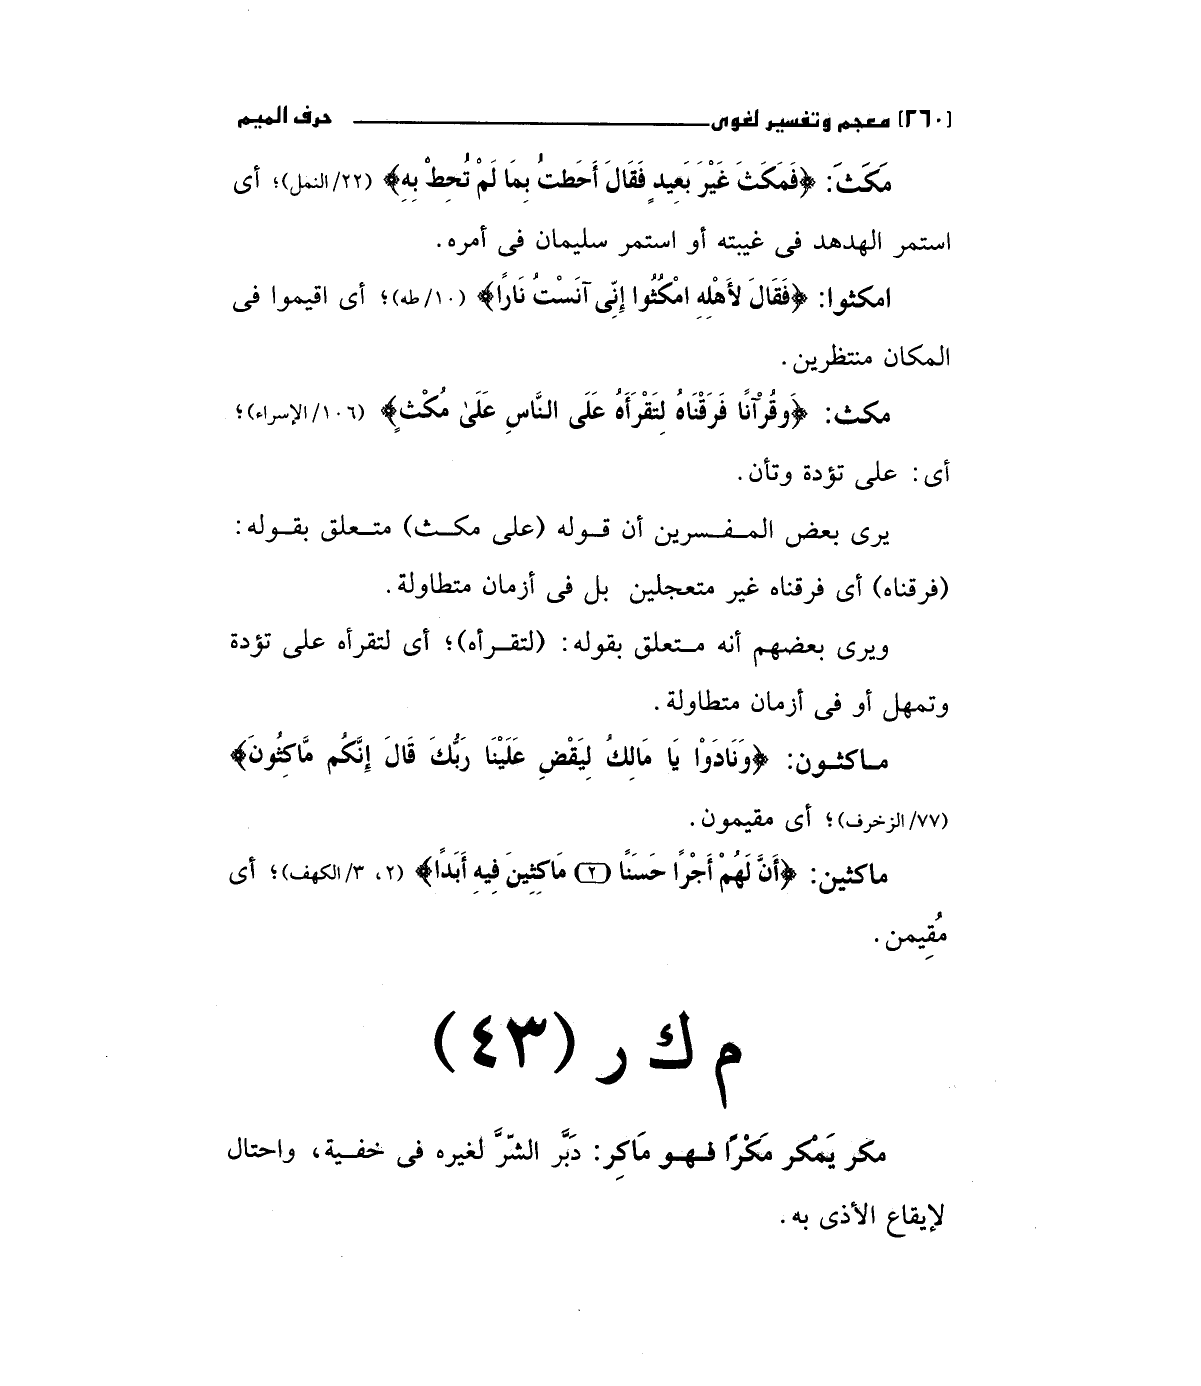 [٢٦٠] معجم وتفسير لغوى ــــــــ حرف الميم
مَكَثَ: ﴿فَمَكَثَ غَيْرَ بَعِيدٍ فَقَالَ أَحَطتُ بِمَا لَمْ تُحِطْ بِهِ﴾ (٢٢/النمل)؛ أى
استمر الهدهد فى غيبته أو استمر سليمان فى أمره.
امكثوا: ﴿فَقَالَ لأَهْلِهِ امْكُثُوا إِنِّى آنَسْتُ نَارًا﴾ (١٠/طه)؛ أى اقيموا فى
المكان منتظرين.
مكث: ﴿وَقُرْآنًا فَرَقْنَاهُ لِتَقْرَأَهُ عَلَى النَّاسِ عَلَىٰ مُكْثٍ﴾ (١٠٦/الإسراء)؛
أى: على تؤدة وتأن.
يرى بعض المفسرين أن قوله (على مكث) متعلق بقوله:
(فرقناه) أى فرقناه غير متعجلين بل فى أزمان متطاولة.
ويرى بعضهم أنه متعلق بقوله: (لتقرأه)؛ أى لتقرأه على تؤدة
وتمهل أو فى أزمان متطاولة.
ماكثون: ﴿وَنَادَوْا يَا مَالِكُ لِيَقْضِ عَلَيْنَا رَبُّكَ قَالَ إِنَّكُم مَّاكِثُونَ﴾
(٧٧/الزخرف)؛ أى مقيمون.
ماكثين: ﴿أَنَّ لَهُمْ أَجْرًا حَسَنًا (٢) مَاكِثِينَ فِيهِ أَبَدًا﴾ (٢، ٣/الكهف)؛ أى
مُقِيمن.
م ك ر (٤٣)
مكر يَمْكر مَكْرًا فهو مَاكِر: دَبَّر الشّرَّ لغيره فى خفية، واحتال
لإيقاع الأذى به.